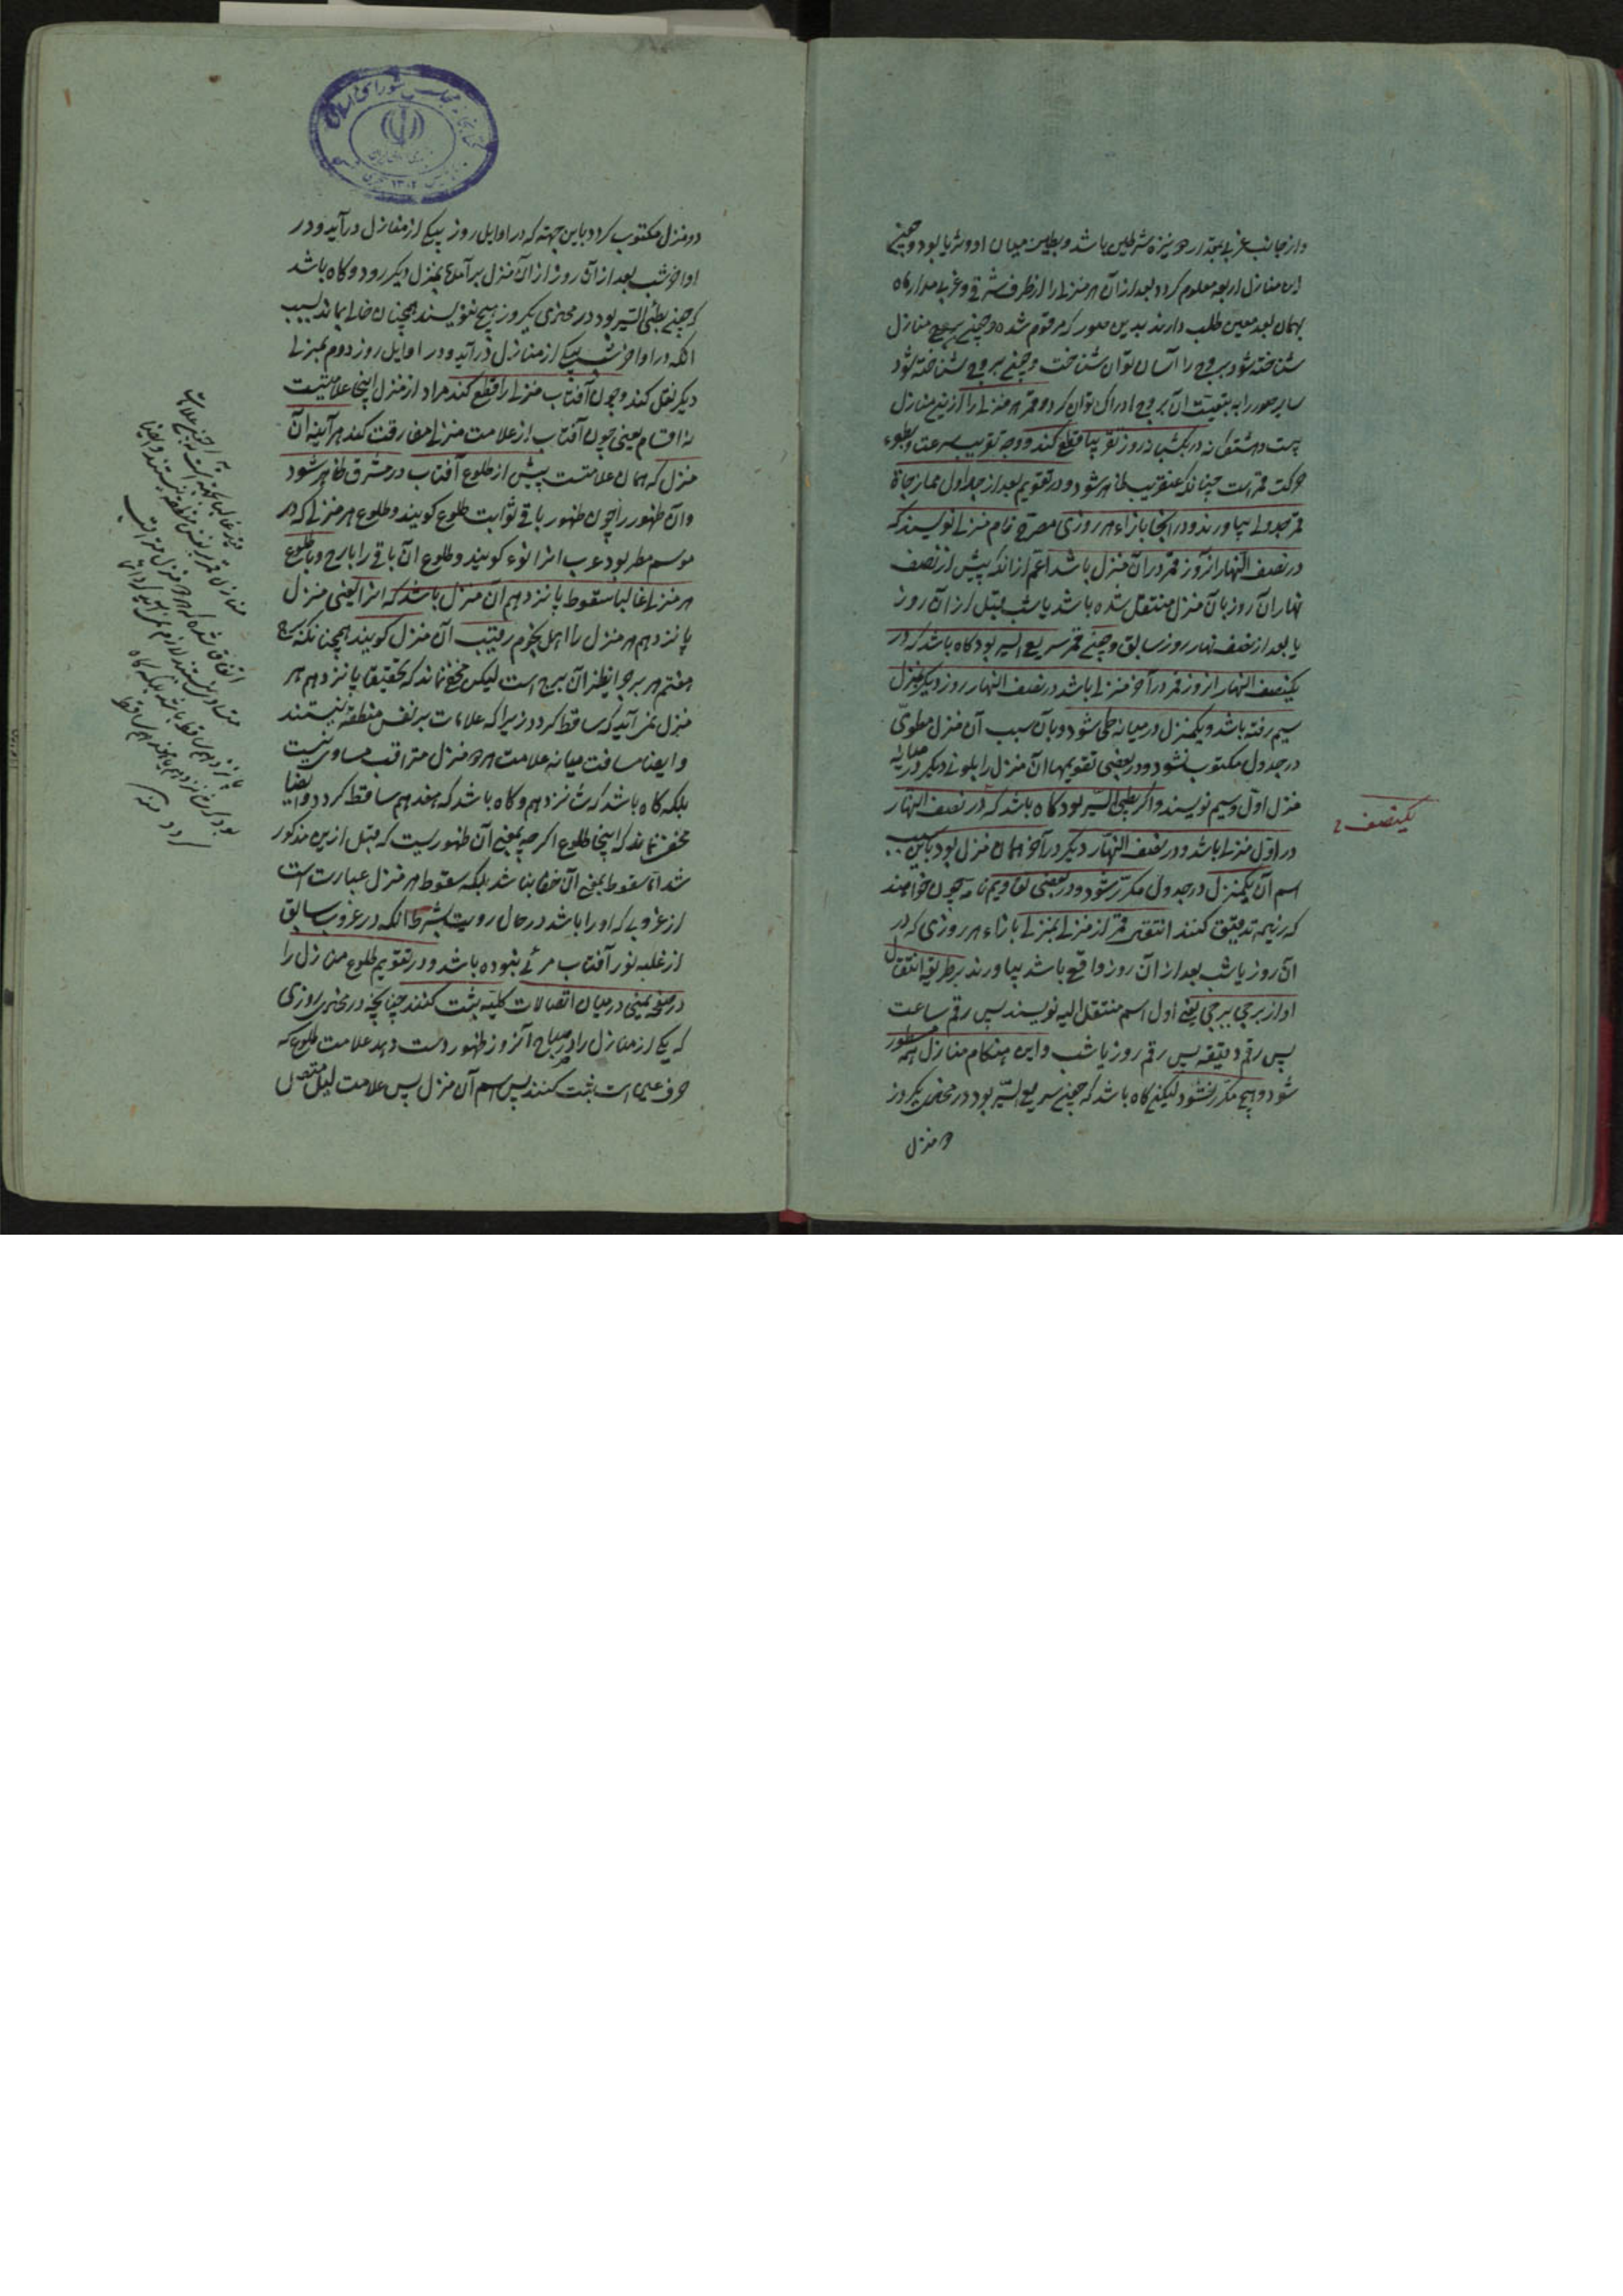 واز جانب غربی بمقدار دو نیزه شرطین باشد و بطین میان او و ثریا بود و چون
این منازل اربعه معلوم کردد بعد از آن هر منزلی را از طرف شرقی و غربی مدار ماه
بهمان بعد معین طلب دارند بدین صور که مرقوم شده و چون منازل
شناخته شود بروج را آسان توان شناخت و چون بروج شناخته شود
سایر صور را به تبعیت آن بروج ادراک توان کرد و قمر هر منزلی را ازین منازل
بیست و هشتکانه در یکشبانروز تقریبا قطع کند و وجه تقریب سرعت و بطوء
حرکت قمر است چنانکه عنقریب ظاهر شود و در تقویم بعد از جداول ممازجات
قمر جدولی بیاورند و در آنجا بازاء هر روزی مصرح نام منزلی نویسند که
در نصف النهار آنروز قمر در آن منزل باشد اعم از آنکه پیش از نصف
نهار آن روز بآن منزل منتقل شده باشد یا شب قبل از آن روز
یا بعد از نصف نهار روز سابق و چون قمر سریع السیر بود کاه باشد که در
یکنصف النهار از روز قمر در آخر منزلی باشد در نصف النهار روز دیکر بمنزل
سیم رفته باشد و یکمنزل در میانه طی شود و بآن سبب آن منزل مطوی
در جدول مکتوب نشود و در بعضی تقویمها آن منزل را بلونی دیکر در میانه
منزل اول و سیم نویسند و اکر بطی السیر بود کاه باشد که در نصف النهار
در اول منزلی باشد و در نصف النهار دیکر در آخر همان منزل بود باین سبب
اسم آن یکمنزل در جدول مکرر شود و در بعضی تقاویم نامه چون خواهند
که زیمه تدقیق کنند انتقال قمر از منزلی بمنزلی بازاء هر روزی که در
آن روز یا شب بعد از آن روز واقع باشد بیاورند بطریق انتقال
او از برجی ببرجی یعنی اول اسم منتقل الیه نویسند پس رقم ساعت
پس رقم دقیقه پس رقم روز یا شب و این هنکام منازل همه مسطور
شود و هیچ مکرر نشود لیکن کاه باشد که چون سریع السیر بود در محاذی یکروز
دو منزل
یکنصف
دو منزل مکتوب کردد باین جهة که در اوایل روز بیکی از منازل درآید و در
اواخر شب بعد از آن روز از آن منزل برآمده بمنزل دیکر رود و کاه باشد
که چون بطئی السیر بود در محاذی یکروز هیچ ننویسند همچنان خالی بماند بسبب
آنکه در اواخر شب بیکی از منازل درآید و در اوایل روز دوم بمنزلی
دیکر نقل کند و چون آفتاب منزلی را قطع کند مراد از منزل اینجا علامتست
نه اقسام یعنی چون آفتاب از علامت منزلی مفارقت کند هر آینه آن
منزل که همان علامتست پیش از طلوع آفتاب در مشرق ظاهر شود
و آن ظهور را چون ظهور باقی ثوابت طلوع کویند و طلوع هر منزلی که در
موسم مطر بود عرب آنرا نوء کویند و طلوع آن باقی را بارح و با طلوع
هر منزلی غالبا سقوط پانزدهم آن منزل باشد که آنرا یعنی منزل
پانزدهم هر منزل را اهل نجوم رقیب آن منزل کویند همچنانکه برج
هفتم هر برج نظیر آن برج است لیکن مخفی نماند که تحقیقا پانزدهم هر
منزل نمی آید که ساقط کردد زیرا که علامات بر نفس منطقه نیستند
و ایضا مسافت میانه علامت هر دو منزل متراقب مساوی نیست
بلکه کاه باشد که شانزدهم و کاه باشد که هفدهم ساقط کردد و ایضا
مخفی نماند که اینجا طلوع اکرچه بمعنی آن ظهوریست که قبل ازین مذکور
شد اما سقوط بمعنی آن خفا نباشد بلکه سقوط هر منزل عبارت است
از غروبی که او را باشد در حال رویت بشرط آنکه در غروب سابق
از غلبه نور آفتاب مرئی نبوده باشد و در تقویم طلوع منازل را
در صفحه یمینی در میان اتصالات کلیه ثبت کنند چنانچه در محاذی روزی
که یکی از منازل را در صباح آنروز ظهور دست دهد علامت طلوع که
حرف عین است ثبت کنند پس اسم آن منزل پس علامت لیل متصل